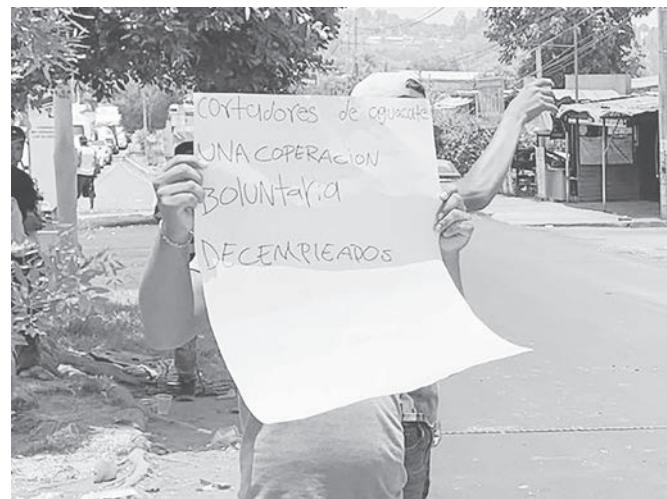 cortadores de aguacate
UNA COPERACION
BOLUNTARIA
DECEMPLEADOS